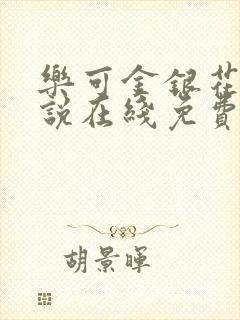 樂可金銀花
說在綫免費
胡景暉